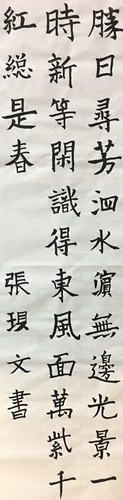 勝日尋芳泗水濵無邊光景一
時新等閑識得東風面萬紫千
紅緫是春 張現文書